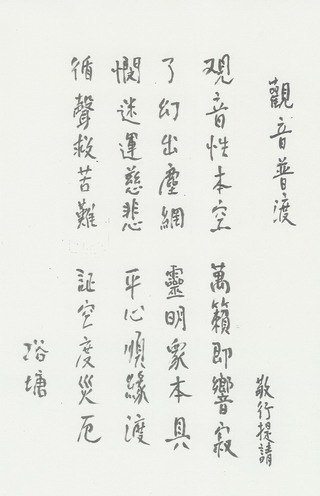 觀音普渡
敬行提請
观音性本空
萬籟即響寂
了幻出塵網
靈明眾本具
憫迷運慈悲
平心順緣渡
循聲救苦難
証空度災厄
塘